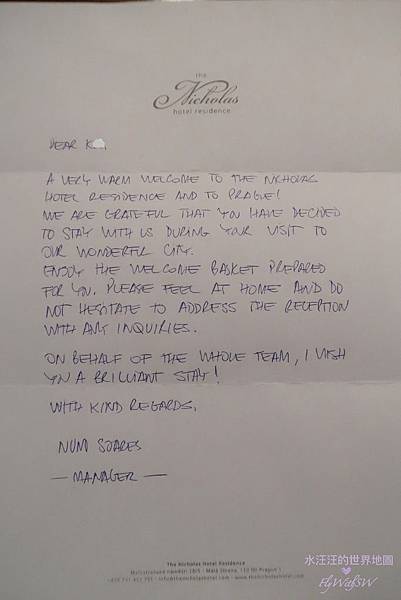 the
Nicholas
hotel residence
DEAR K
A VERY WARM WELCOME TO THE NICHOLAS
HOTEL RESIDENCE AND TO PRAGUE!
WE ARE GRATEFUL THAT YOU HAVE DECIDED
TO STAY WITH US DURING YOUR VISIT TO
OUR WONDERFUL CITY.
ENJOY THE WELCOME BASKET PREPARED
FOR YOU. PLEASE FEEL AT HOME AND DO
NOT HESITATE TO ADDRESS THE RECEPTION
WITH ANY INQUIRIES.
ON BEHALF OF THE WHOLE TEAM, I WISH
YOU A BRILLIANT STAY!
WITH KIND REGARDS,
NUNO SOARES
— MANAGER —
The Nicholas Hotel Residence
Malostranské náměstí 5, Malá Strana, 110 00 Prague 1
info@thenicholashotel.com - www.thenicholashotel.com
水汪汪的世界地圖
FlyWaySW